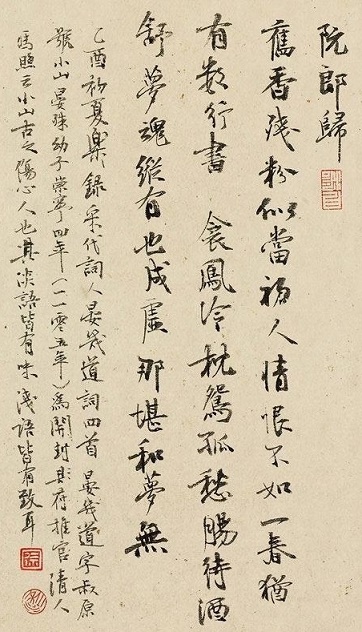 阮郎歸
舊香殘粉似當初人情恨不如一春猶
有數行書 衾鳳冷枕鴛孤愁腸待酒
舒夢魂縱有也成虛那堪和夢無
乙酉初夏樂錄宋代詞人晏幾道詞四首 晏幾道字叔原
號小山晏殊幼子崇寧四年(一一零五年)為開封縣府推官清人
馮煦云小山古之傷心人也其淡語皆有味淺語皆有致耳